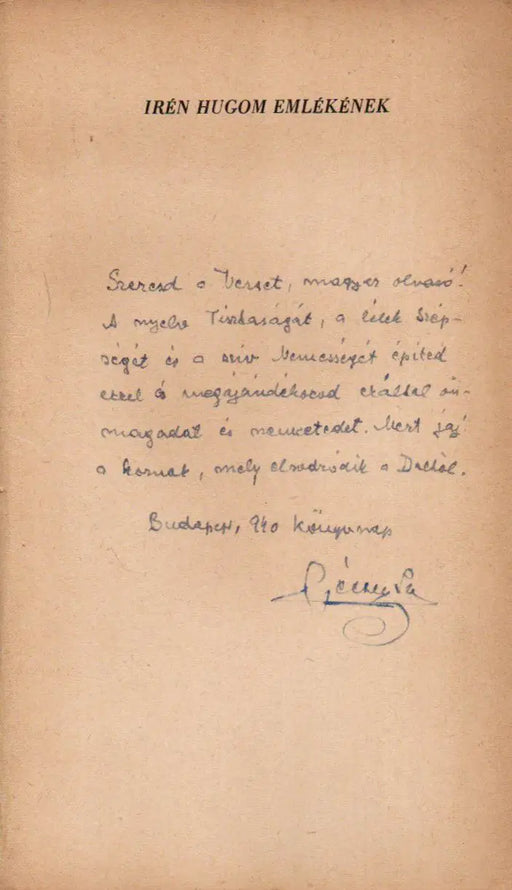 IRÉN HUGOM EMLÉKÉNEK
Szeresd a Verset, magyar olvasó!
A nyelv Tisztaságát, a lélek Szép-
ségét és a szív Nemességét építed
ezzel és megajándékozod ezáltal ön-
magadat és nemzetedet. Mert jaj
a kornak, mely elsodródik a Daltól.
Budapest, 940 könyvnap